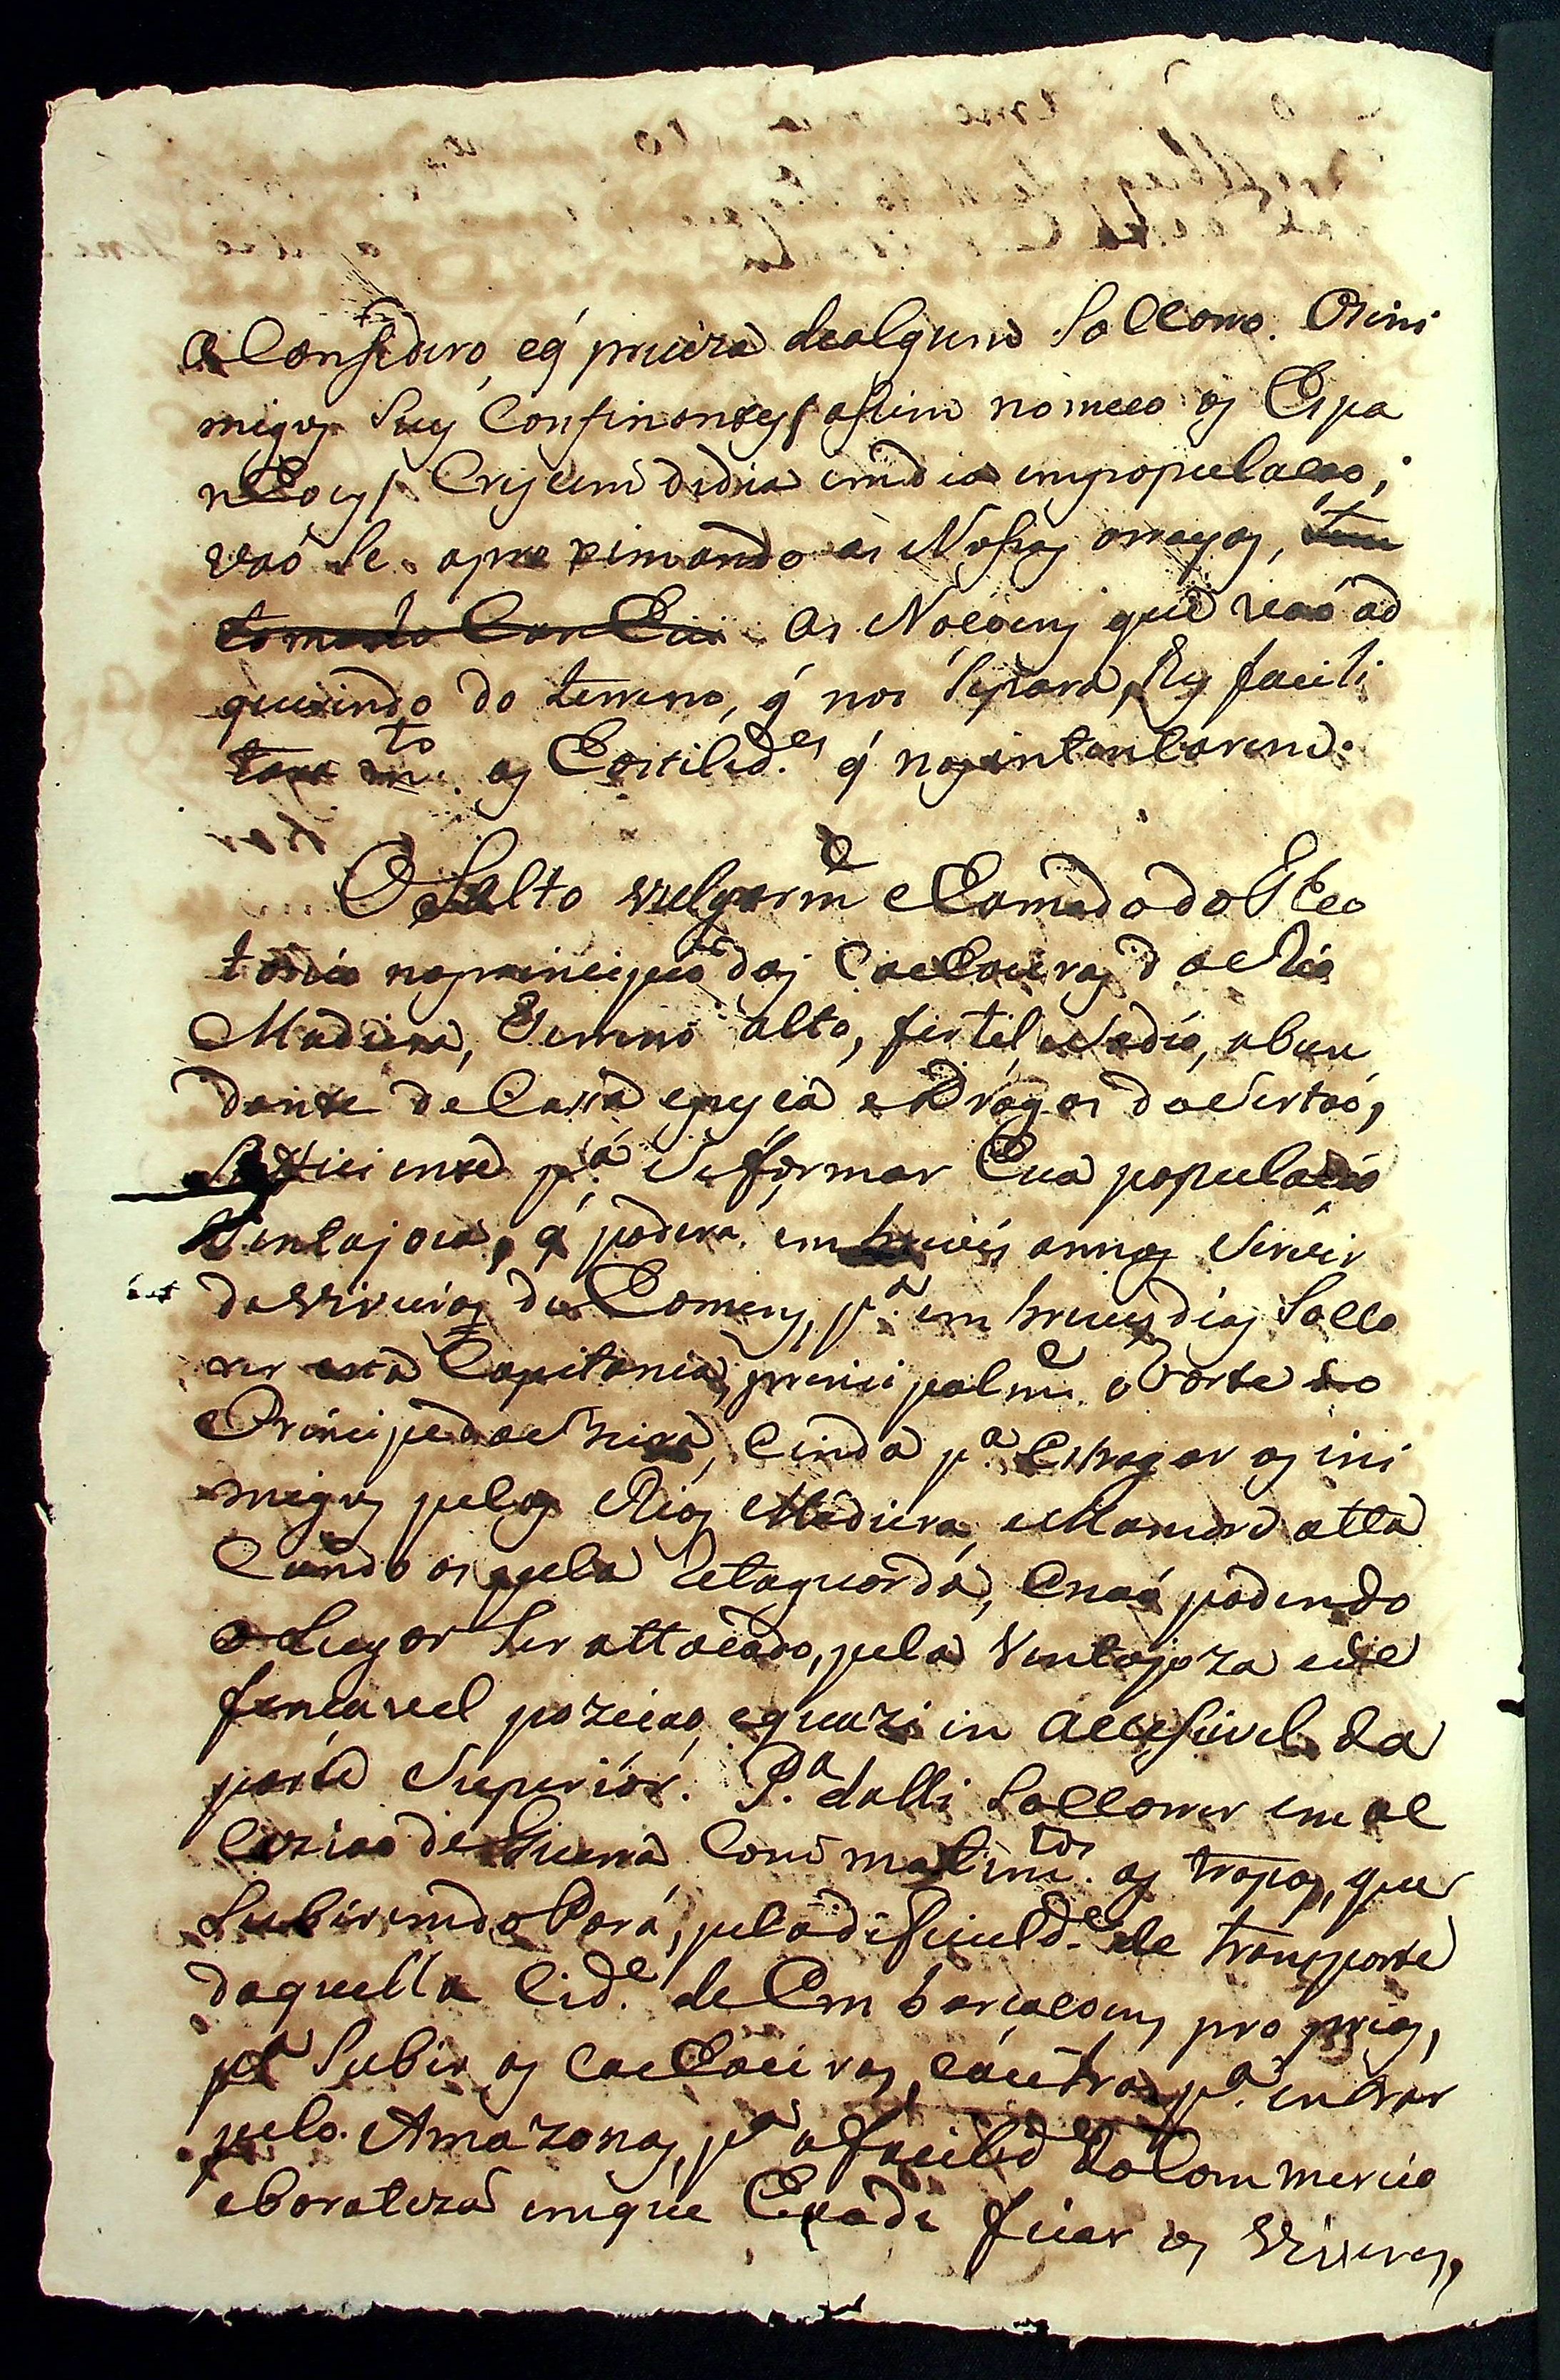 a Considero, e q̃ preciza de algum Soccorro. Os ini
migos Seus Confinantes / assim nomeio os Espa
nhoes / Crescem de dia em dia em população,
vaõ Se aproximando as Nossas rayas,
tomando Conta As Noçoens que vaõ ad
querindo do terreno, q̃ nos Separa, lhes facili
taraõ m.to as Hostilid.es q̃ nos intentarem.
O Salto vulgarm.e chamado do Theo
tonio no principio das Cachoeiras do Rio
Madeira, Terreno alto, fertil, sadio, abun
dante de Cassa e pesca e Drogas do Sertaõ,
Sufficiente p.a Se formar hua populaçaõ
Ventajoza, q̃ poderá em breves annos Servir
de viveiros de homens, p.a em breves dias Socco
rer esta Capitania, principalm.e o Forte do
Principe da Beira, e inda p.a estragar os ini
migos pelos Rios Madeira, e Mamoré atta
cando os pela Retaguarda, e naõ podendo
o Lugar Ser attacado, pela Ventajoza e de
fençavel pozição, e quazi in accessivel da
parte Superior. P.a dalli Soccorrer em oc
caziaõ de Guerra Com mantim.tos as tropas, que
Subirem do Pará, pela difficuld.e de transporte
daquella Cid.e de Embarcaçoens proprias,
p.a Subir as Cachoeiras, e outras p.a entrar
pelo Amazonas, p.a a facilid.e do Commercio
e barateza em que haõ de ficar os Viveres,